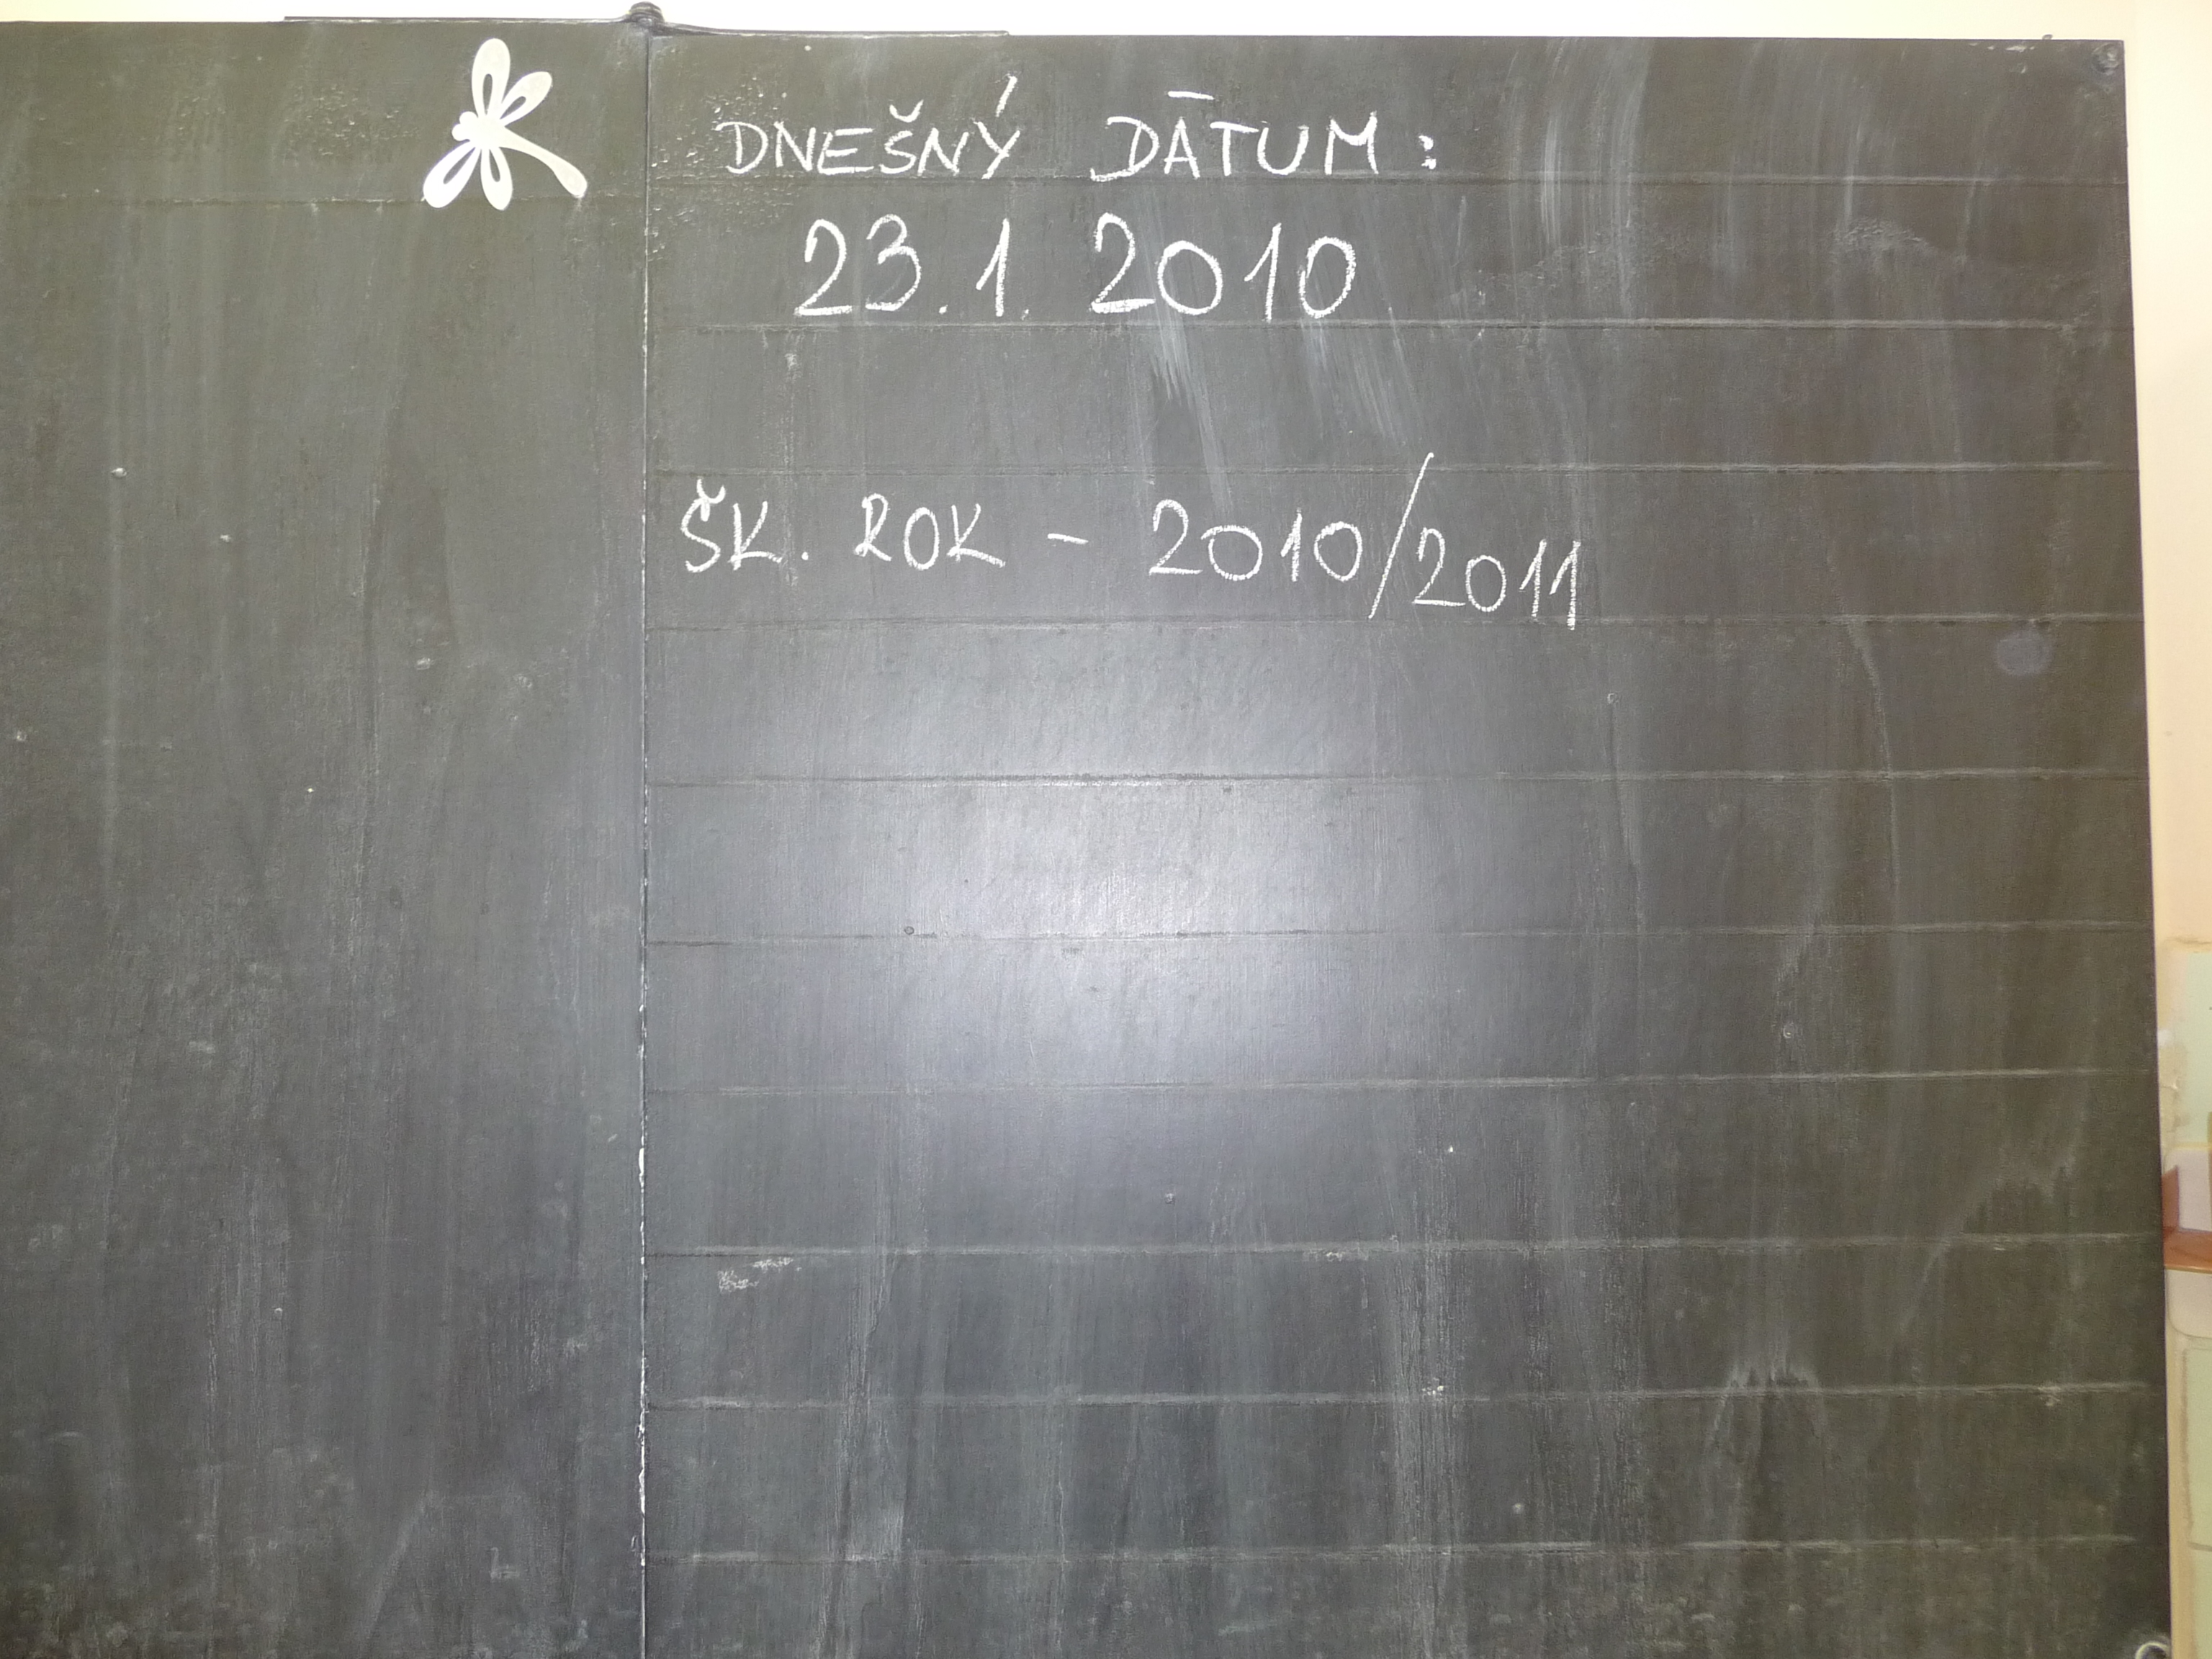 DNEŠNÝ DĀTUM:
23.1. 2010
ŠK. ROK - 2010/2011